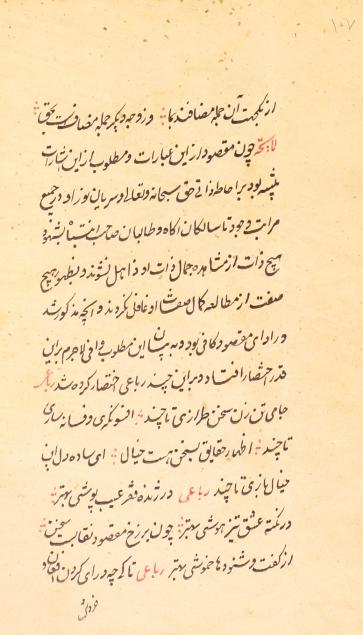 ۱۰۷
از یکجهت آن جمله مضافند بما وز وجه دیگر جمله مضافست بحق
لایحه چون مقصود ازین عبارات و مطلوب ازین اشارات
تنبیه بود بر احاطه ذاتی حق سبحانه وتعالی و سریان نور او در جمیع
مراتب وجود تا سالکان آگاه و طالبان صاحب انتباه بشهود
هیچ ذات از مشاهده جمال ذات او ذاهل نشوند و بظهور هیچ
صفت از مطالعه کمال صفات او غافل نگردند و آنچه مذکور شد
در ادای مقصود کافی بود و به بیان این مطلوب وافی لاجرم برین
قدر اختصار افتاد و برین چند رباعی اختصار کرده شد رباعی
جامی تن زن سخن طرازی تا چند افسونگری و فسانه سازی
تا چند اظهار حقایق بسخن هست خیال ای ساده دل این
خیال بازی تا چند رباعی در ژنده فقر عیب پوشی بهتر
در نکته عشق تیز هوشی بهتر چون بر رخ مقصود نقابست سخن
از گفت و شنود ما خموشی بهتر رباعی تا کی چو درای کردن افغان